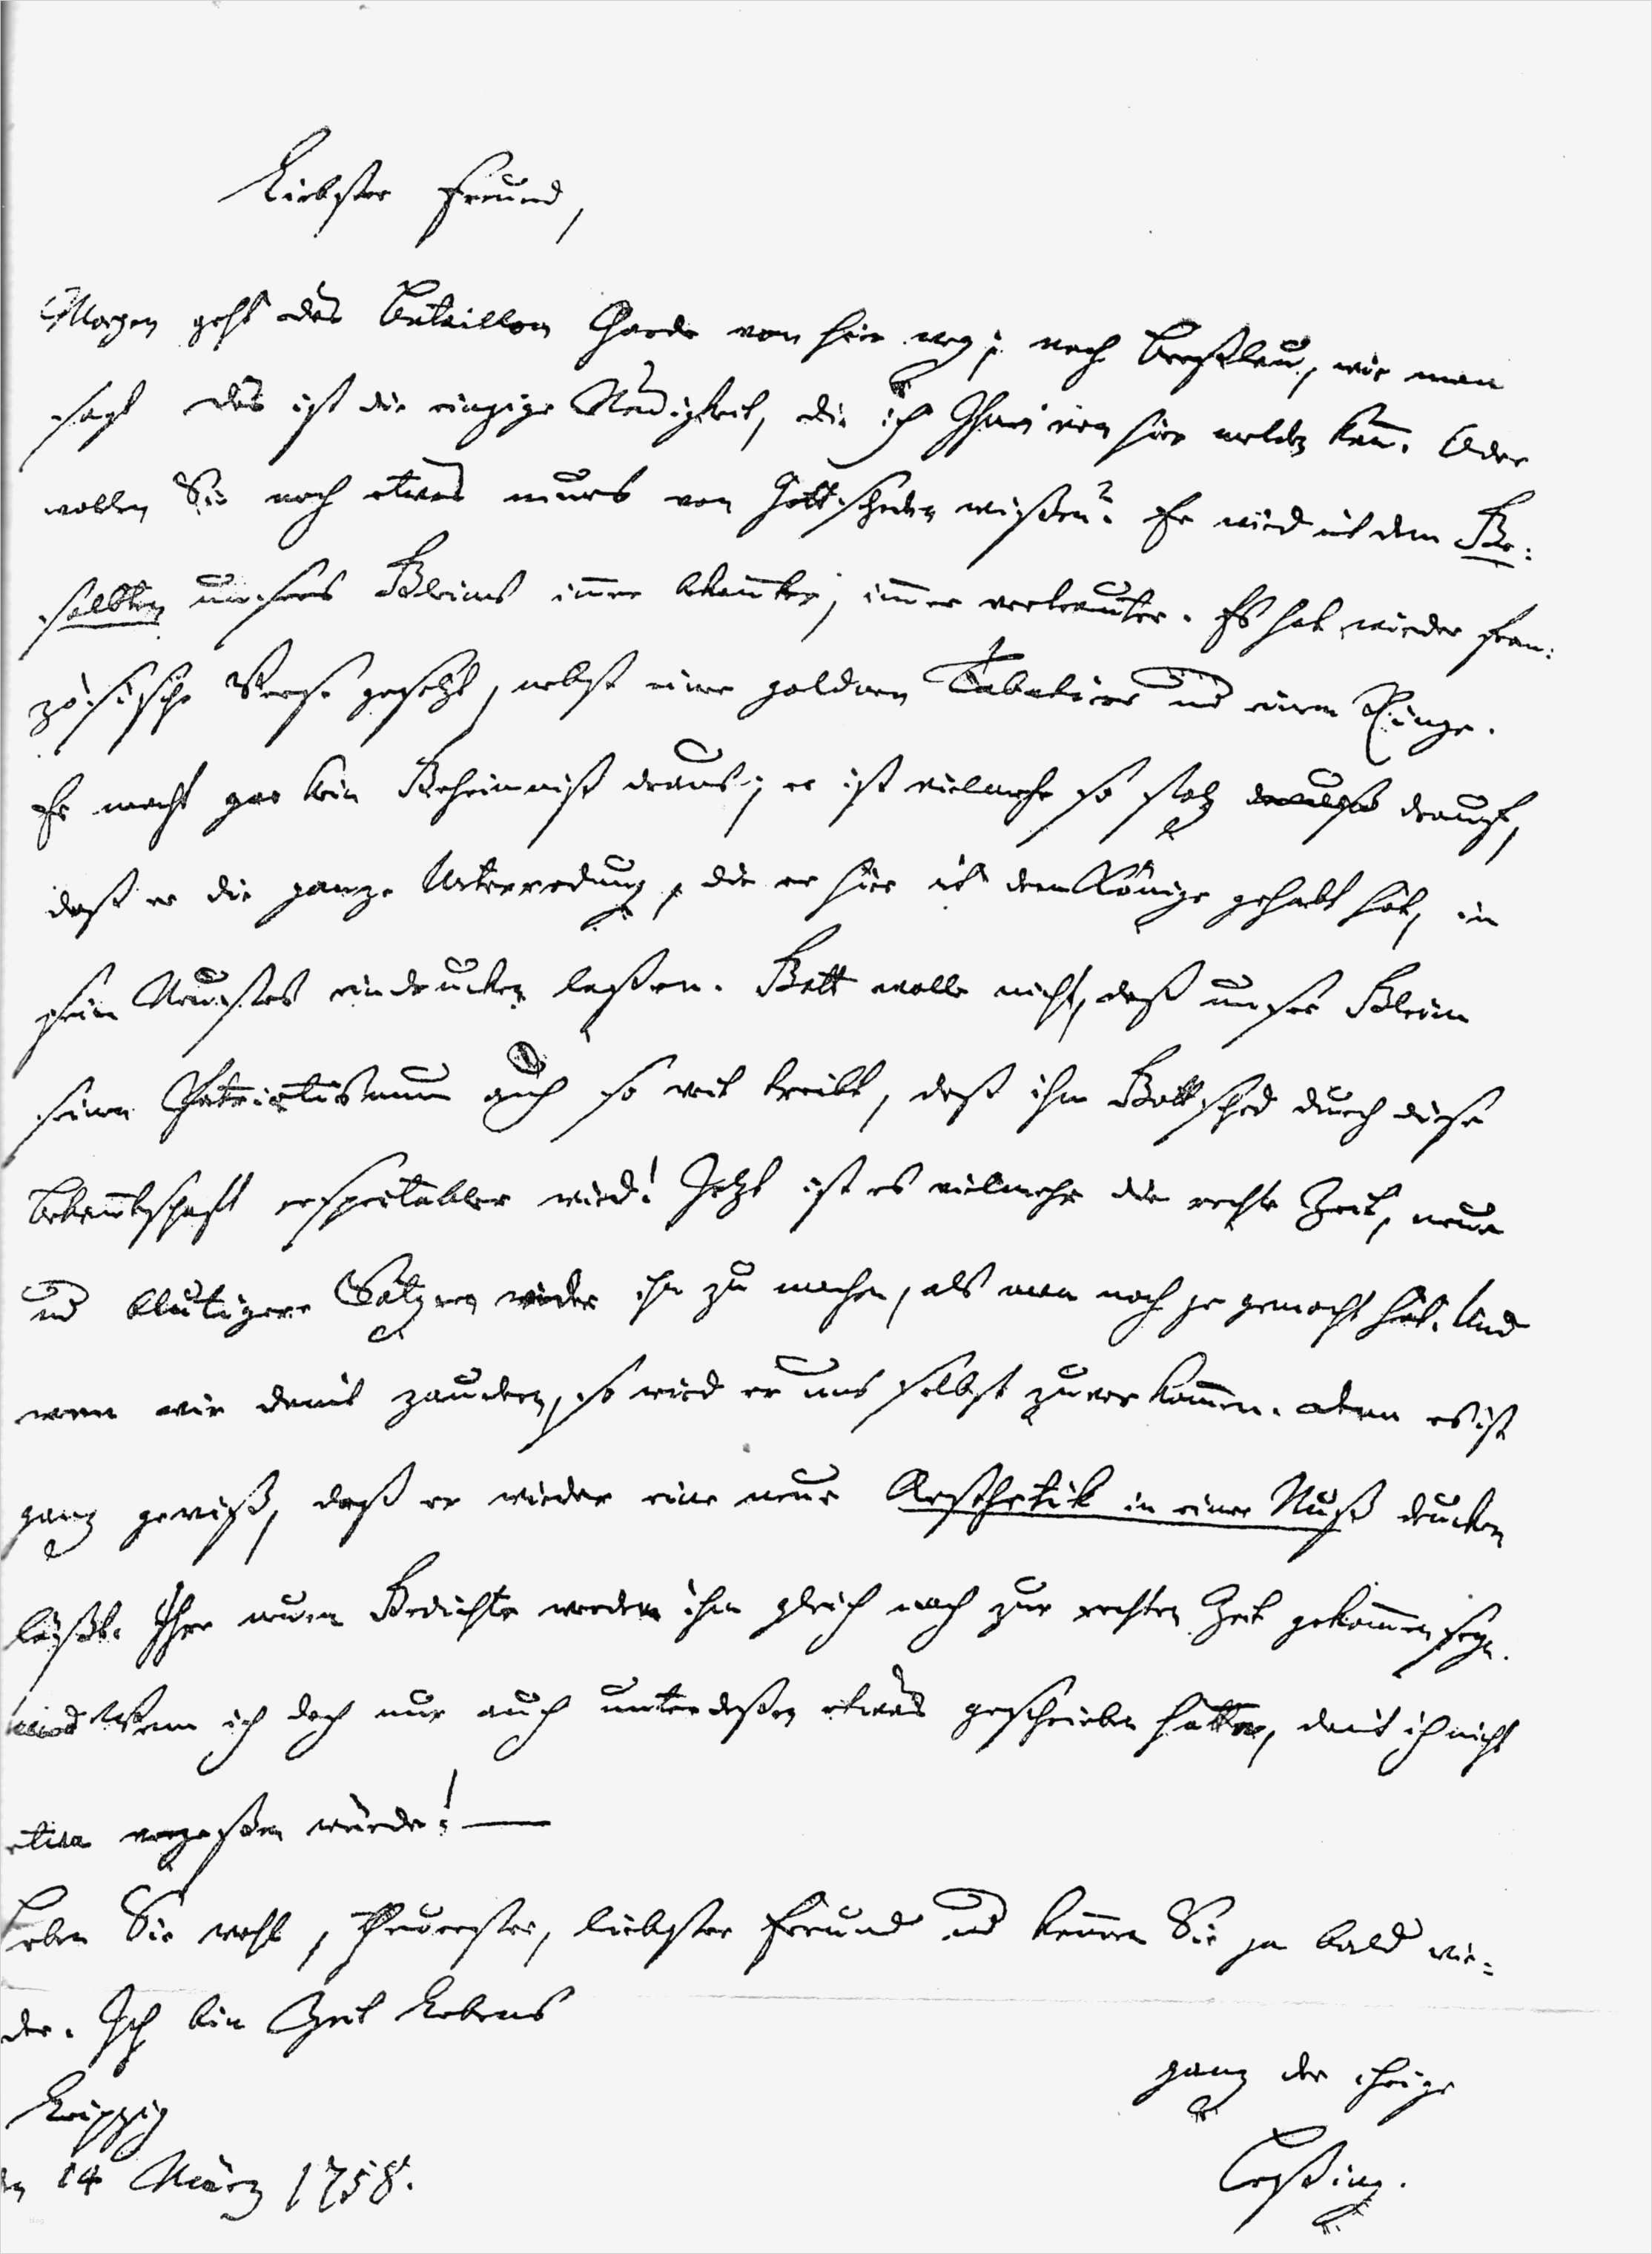 Liebster Freund,
Morgen geht das Bataillon Garde von hier weg; nach Breßlau, wie man
sagt das ist die einzige Neuigkeit, die ich Ihnen von hier melden kan. Oder
wollen Sie noch etwas neues von Gottscheden wißen? Er wird mit dem Be:
selbten unsers Gleims immer bekannter, immer vertrauter. Es hat wieder fran:
zösische Verse gesetzt, nebst einer goldnen Tabatiere und einem Ringe.
Er macht gar kein Geheimniß draus; er ist vielmehr so stolz drauf,
daß er die ganze Unterredung, die er hier mit dem Könige gehabt hat, in
sein Neustes eindrucken laßen. Gott wolle nicht, daß unser Gleim
seinen Patriotismum auch so weit treibt, daß ihm Gottsched durch diese
Bekanntschaft respectabler wird! Jetzt ist es vielmehr die rechte Zeit, neue
und blutigere Satyren wider ihn zu machen, als man noch je gemacht hat. Und
wenn wir damit zaudern, so wird er uns selbst zuvorkommen. denn es ist
ganz gewiß, daß er wieder eine neue Aesthetik in einer Nuß drucken
läßt. Ihre neuen Gedichte werden ihm gleich noch zur rechten Zeit gekommen seyn.
Wenn ich doch nur auch unterdeßen etwas geschrieben hätte, damit ich nicht
etwa vergeßen würde! —
Leben Sie wohl, theuerster, liebster Freund und kommen Sie ja bald wie=
der. Ich bin Zeit Lebens
ganz der ihrige
Leipzig
den 14 März 1758.
Leßing.